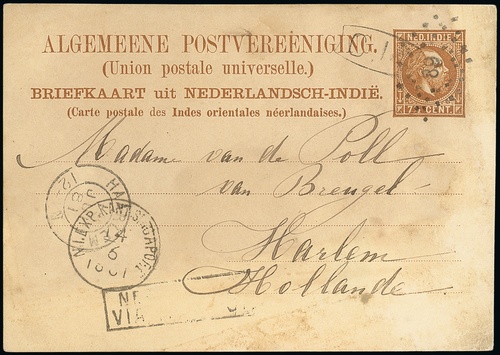 ALGEMEENE POSTVEREENIGING.
(Union postale universelle.)
BRIEFKAART uit NEDERLANDSCH-INDIË.
(Carte postale des Indes orientales néerlandaises.)
NED. INDIE
7½ CENT.
Madame van de Poll
van Breugel
Harlem
Hollande
HA
12
81
N.I.EXP.KANT.SINGAPORE
6
1881
NE
VIA